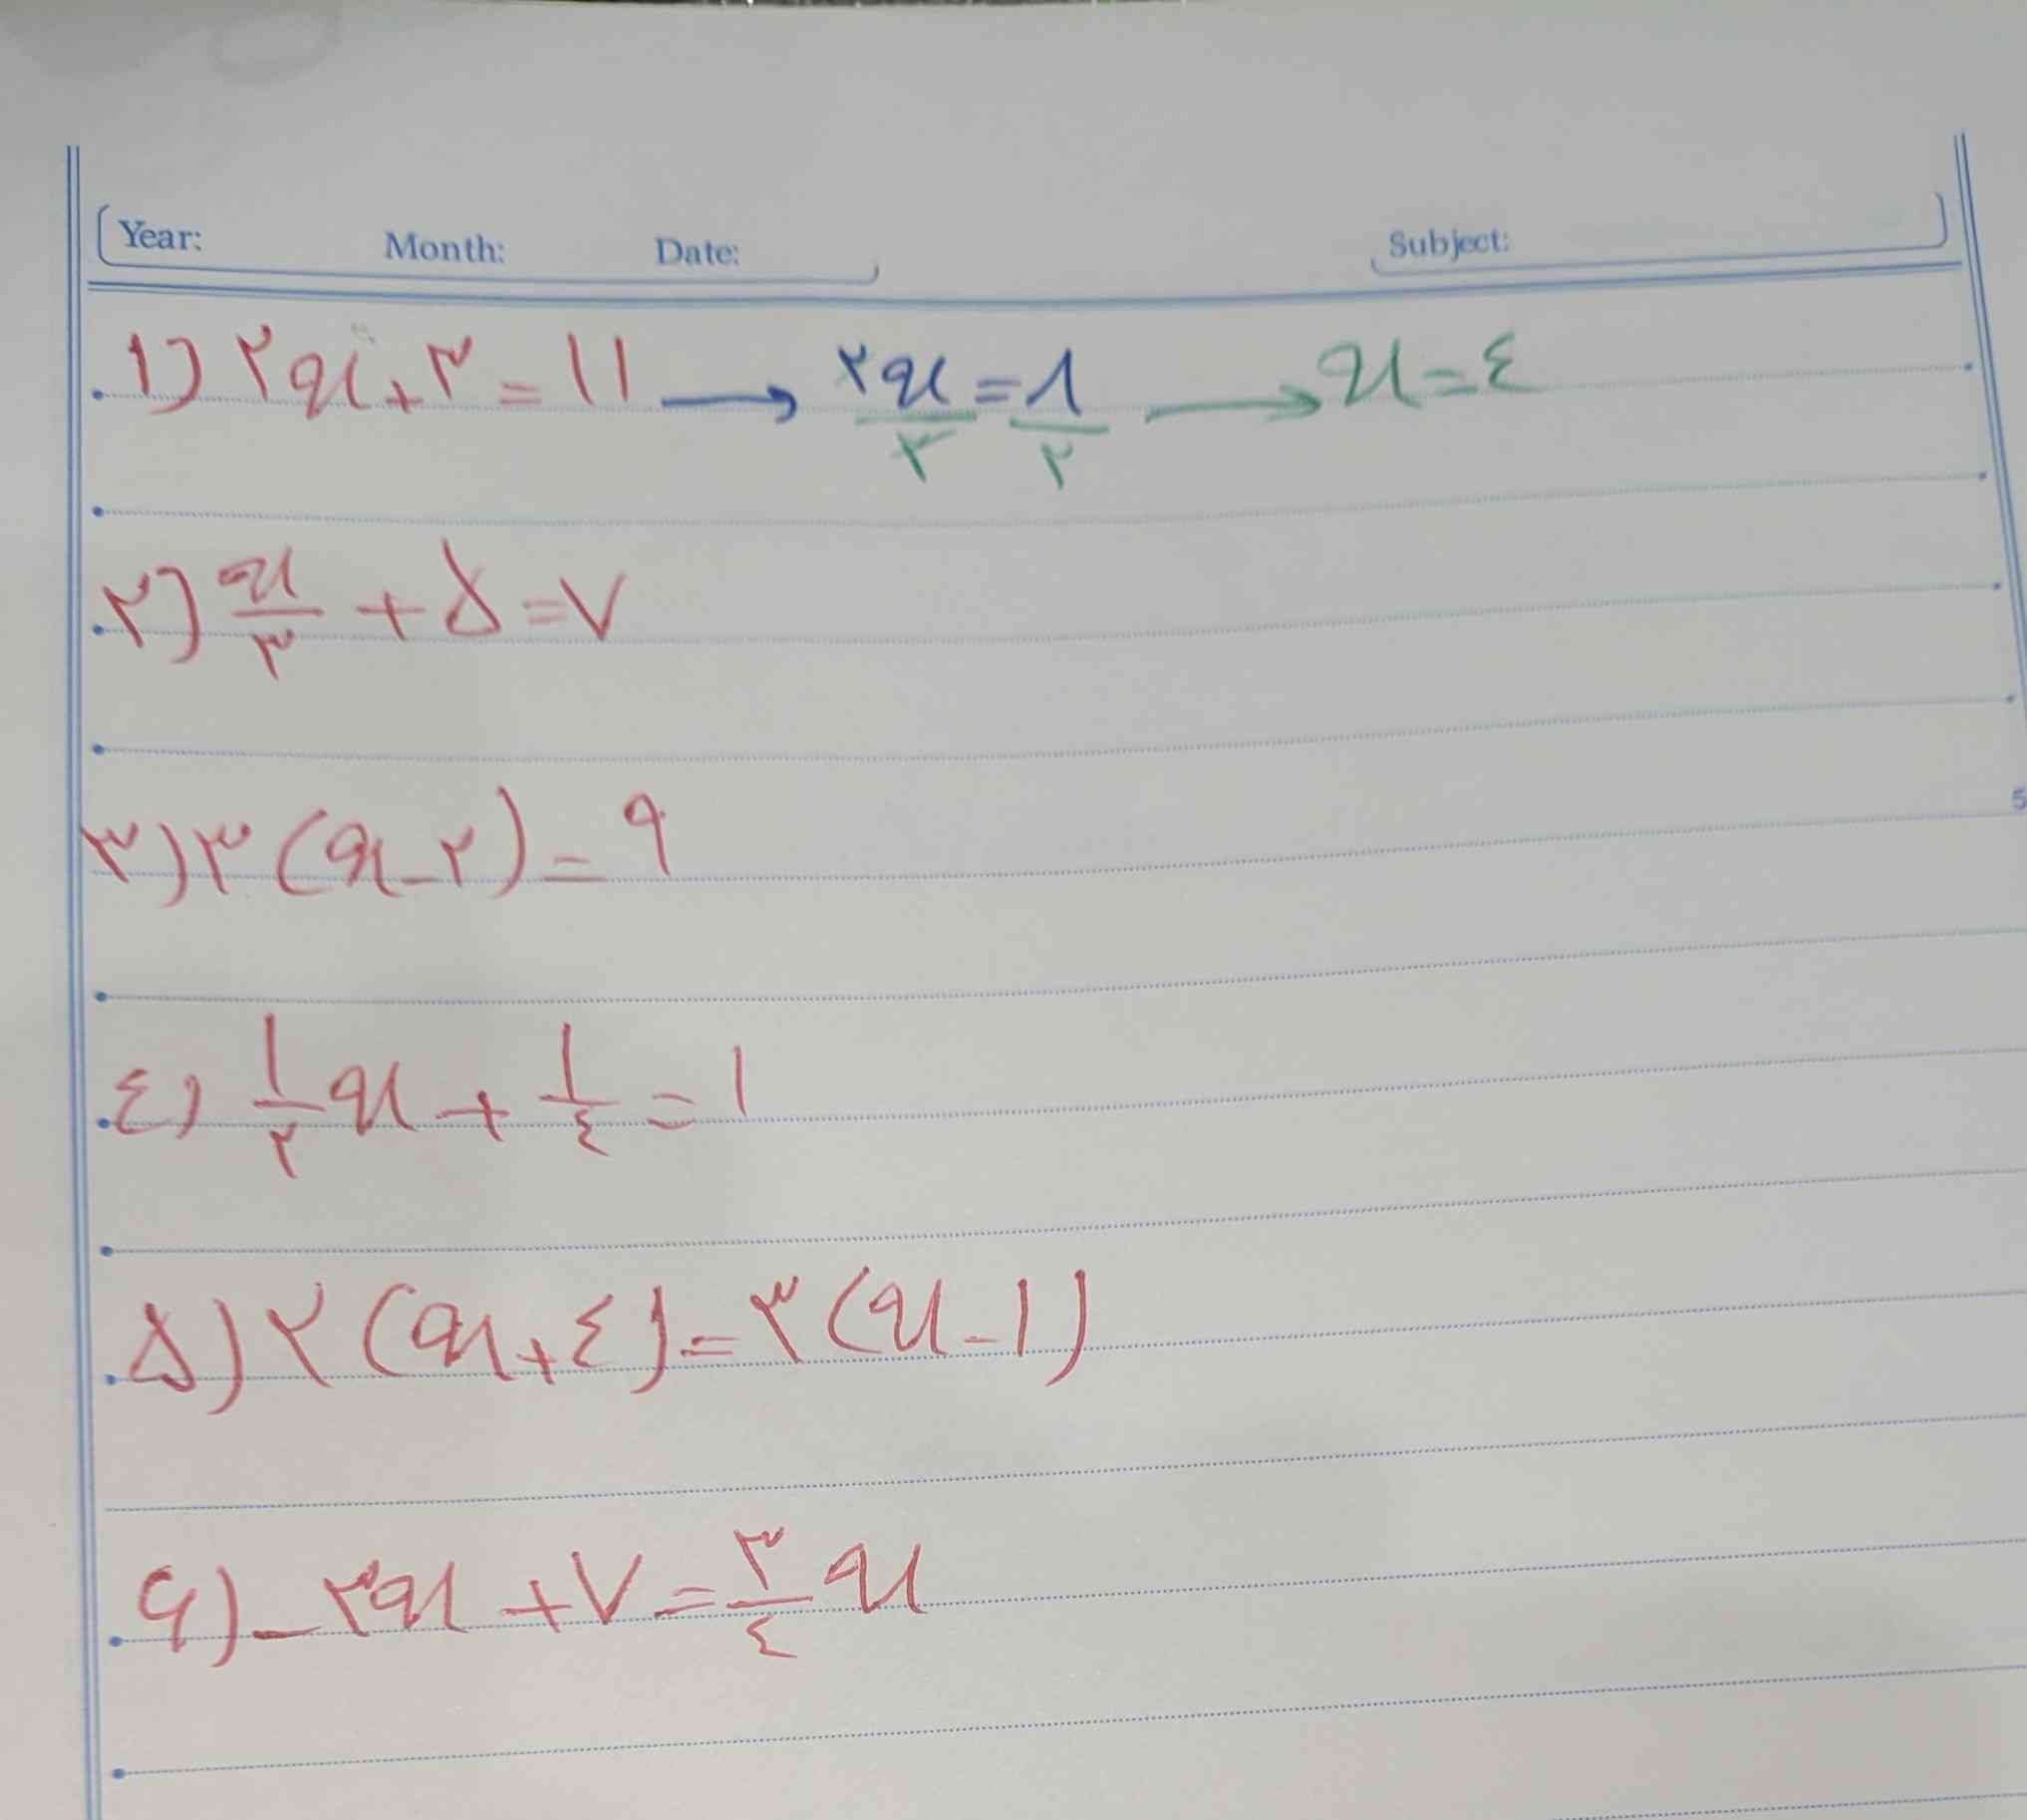 Year: Month: Date: Subject:
۱) ۲x + ۳ = ۱۱ → ۲x/۲ = ۸/۲ → x = ٤
۲) x/۳ + ۵ = ۷
۳) ۳(x - ۲) = ۹
٤) ۱/۲ x + ۱/٤ = ۱
۵) ۲(x + ٤) = ۳(x - ۱)
۶) -۳x + ۷ = ۳/٤ x
5